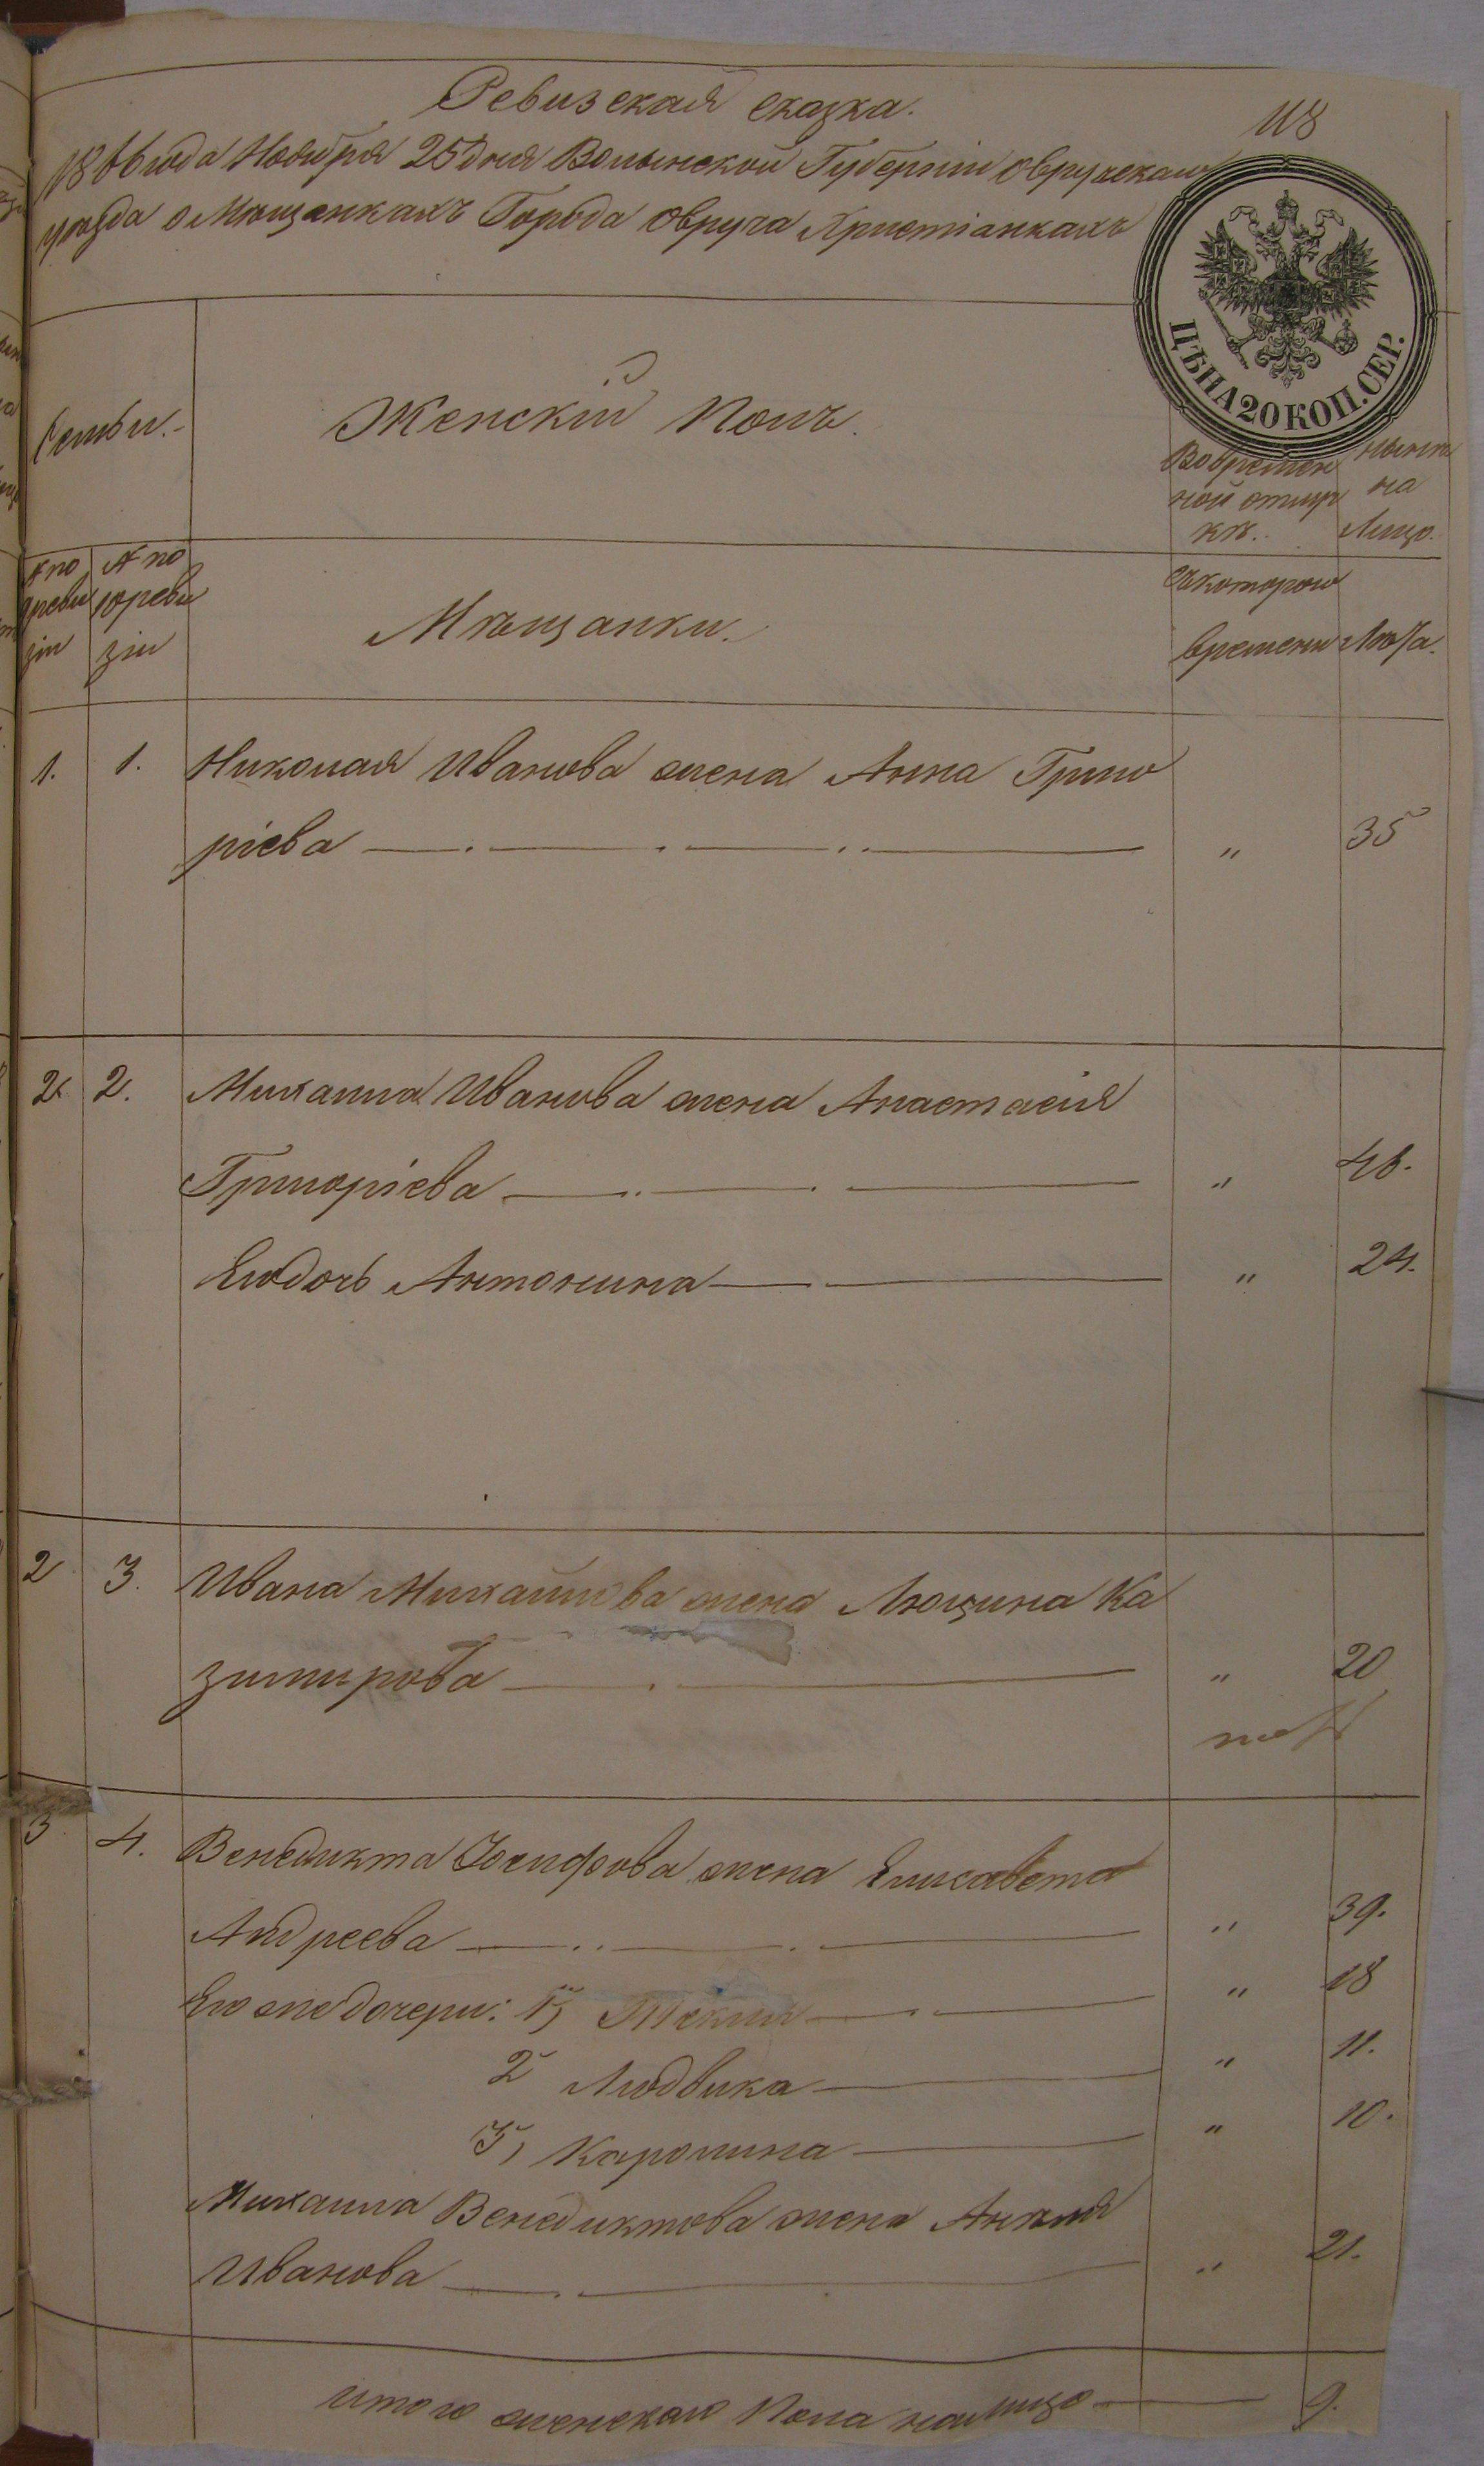 Ревизская сказка.
118
1866 года Ноября 25 дня Волынской Губерніи Овручскаго
уѣзда о Мѣщанкахъ Города Овруча Христіанкахъ
ЦѢНА 20 КОП. СЕР.
Семьи. Женскій полъ. Во времен нынѣ
ной отлуч на
кѣ. Лицо.
№ по № по съ котораго
9 реви 10 реви Мѣщанки.
зіи зіи времени Лѣта.
1. 1. Николая Иванова жена Анна Григо
ріева — " 35
2 2. Михаила Иванова жена Анастасія
Григоріева — " 46.
Его дочь Антонина — " 24.
2 3. Ивана Михайлова жена Люцина Ка
зимирова — " 20
3 4. Венедикта Іосифова жена Елисавета
Андреева — " 39.
Его же дочери: 1, Текля — " 18
2 Людвика — " 11.
3, Каролина — " 10.
Михаила Венедиктова жена Анеля
Иванова — " 21.
Итого женскаго пола налицо — 9.